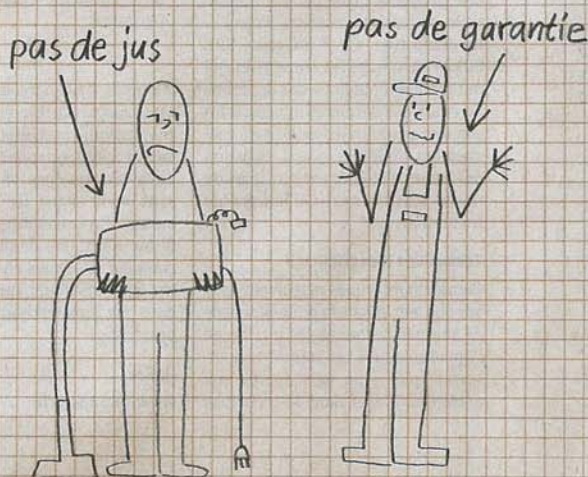 pas de jus
pas de garantie